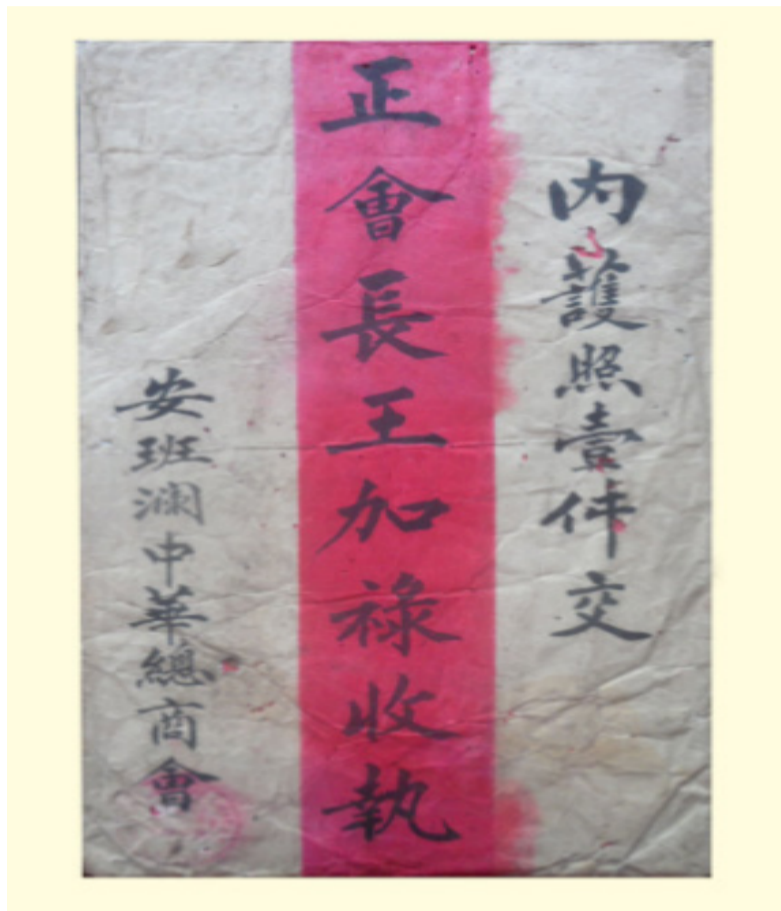 內護照壹件交
正會長王加祿收執
安班瀾中華總商會